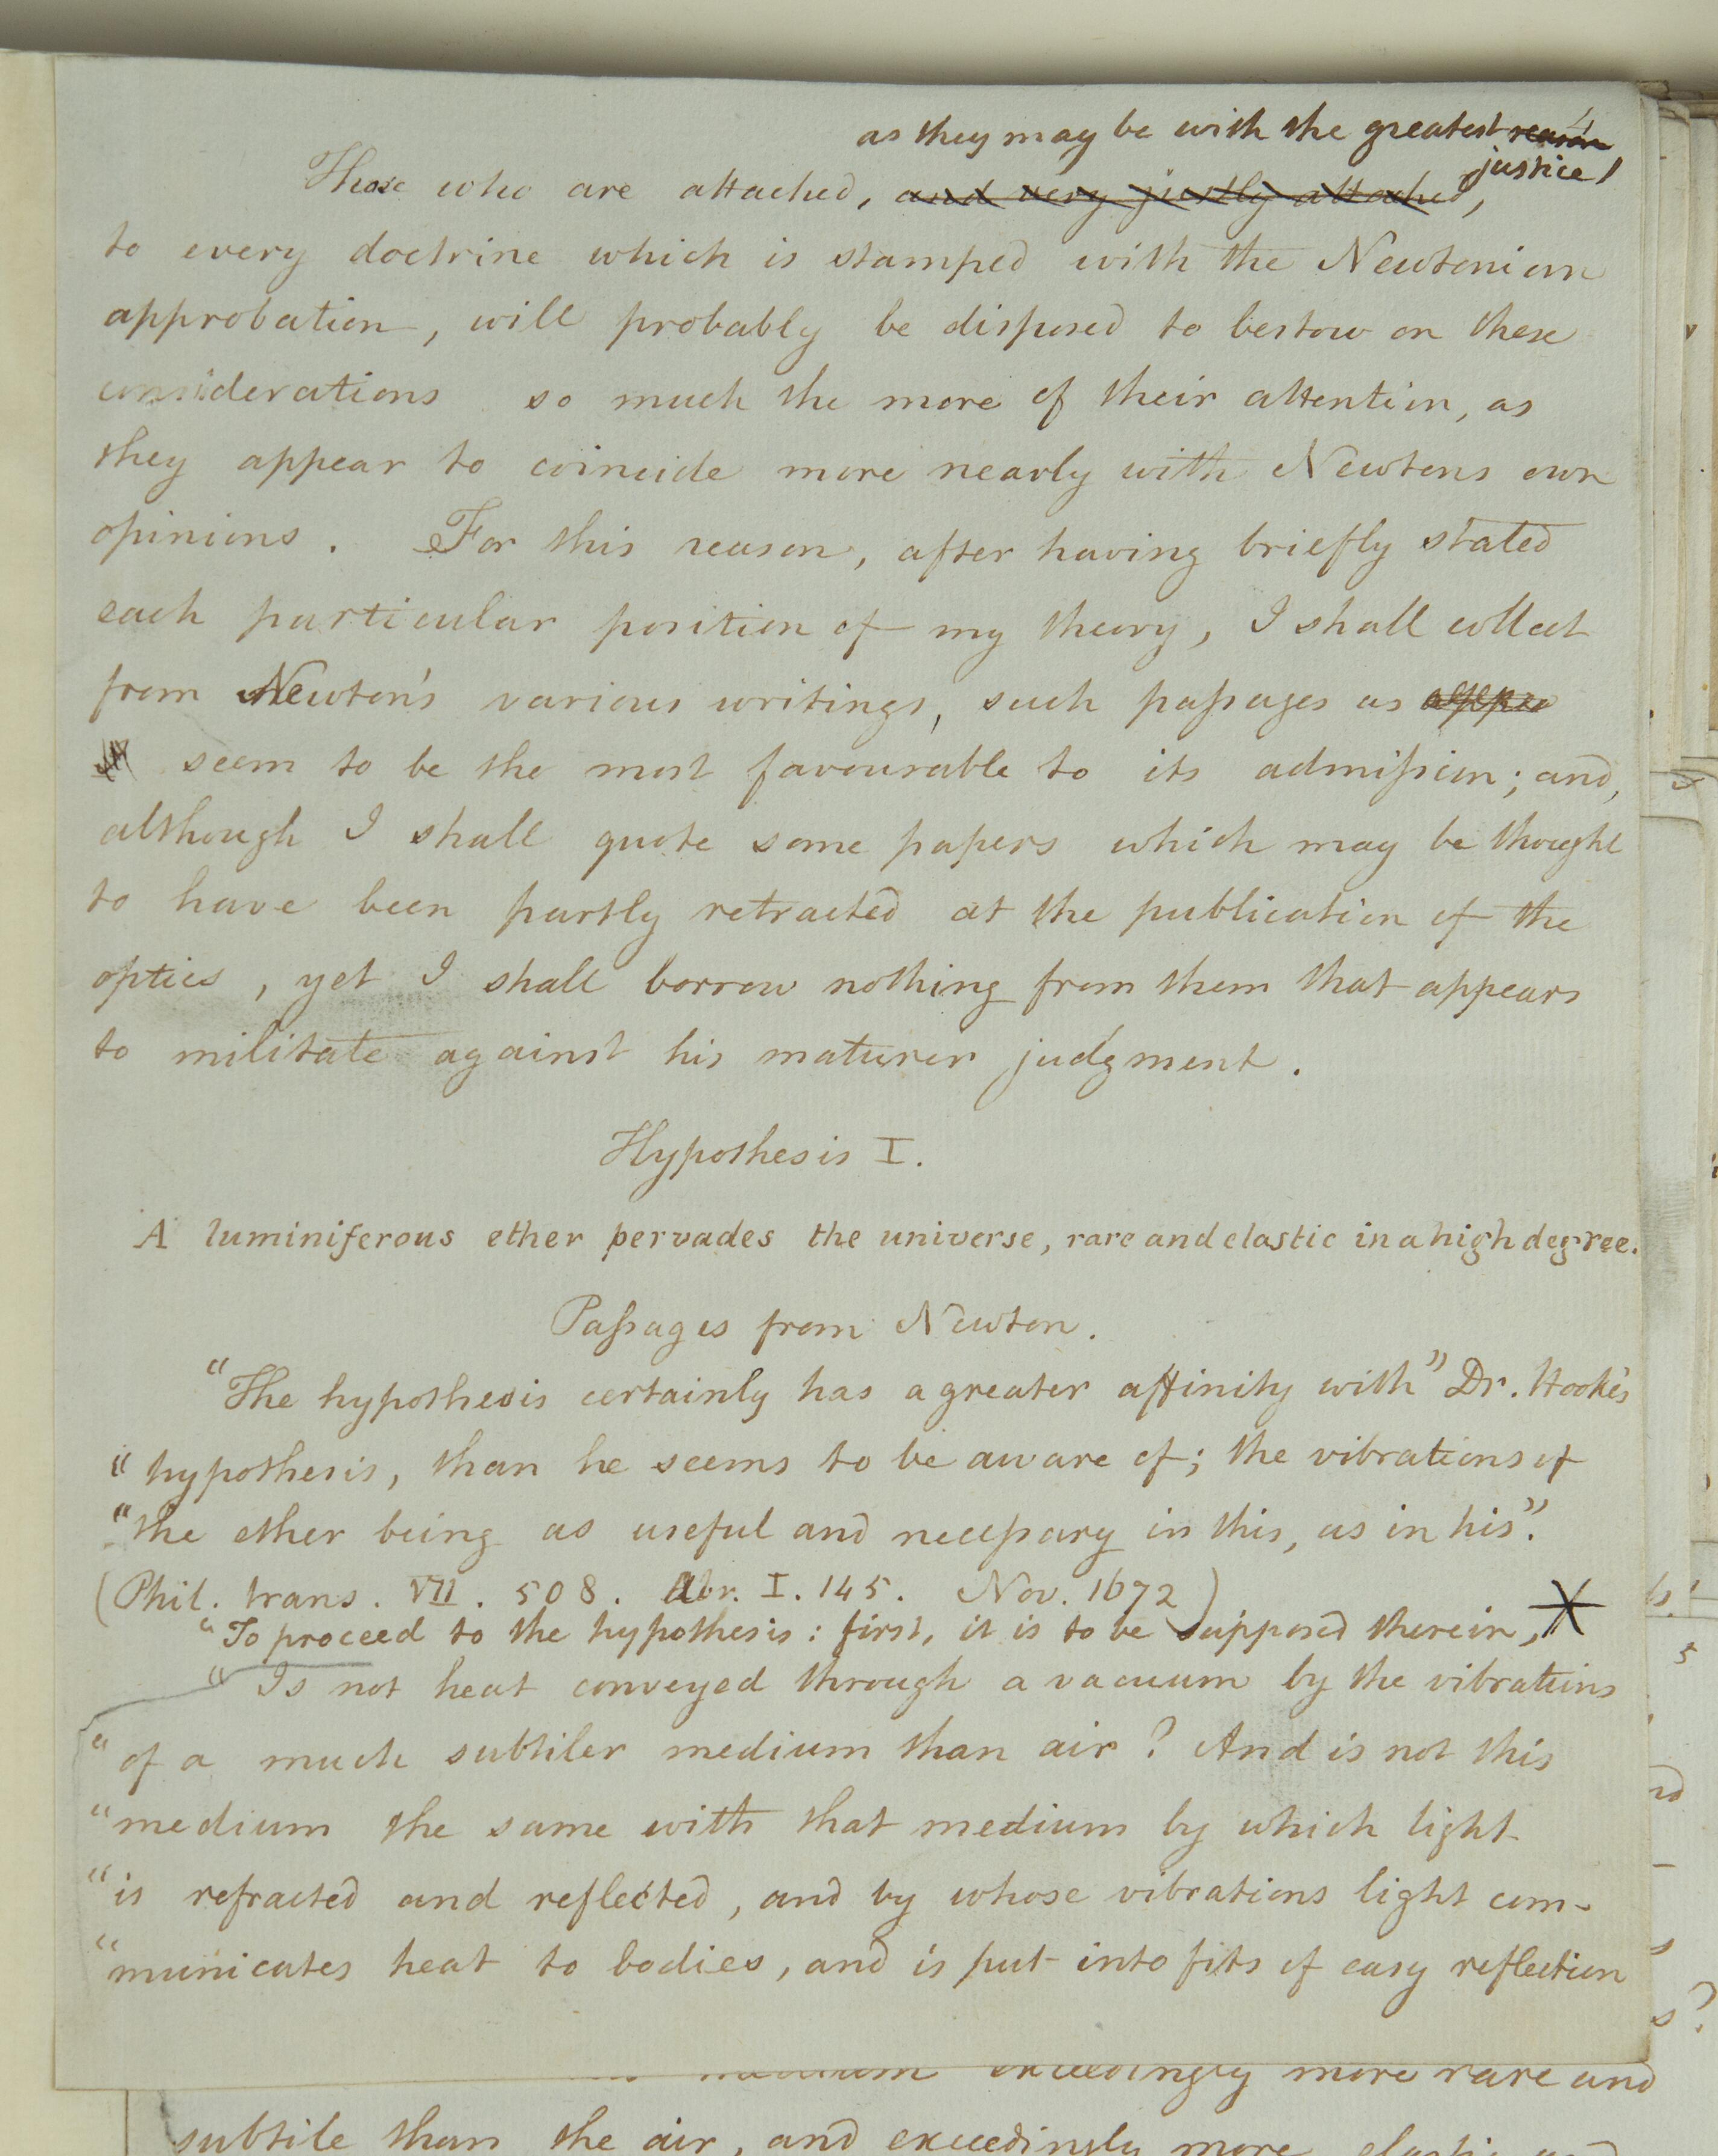 as they may be with the greatest reason
justice,
Those who are attached, and very justly attached,
to every doctrine which is stamped with the Newtonian
approbation, will probably be disposed to bestow on these
considerations so much the more of their attention, as
they appear to coincide more nearly with Newtons own
opinions. For this reason, after having briefly stated
each particular position of my theory, I shall collect
from Newton's various writings, such paſsages as appea
seem to be the most favourable to its admiſsion; and,
although I shall quote some papers which may be thought
to have been partly retracted at the publication of the
optics, yet I shall borrow nothing from them that appears
to militate against his maturer judgment.
Hypothesis I.
A luminiferous ether pervades the universe, rare and elastic in a high degree.
Paſsages from Newton.
"The hypothesis certainly has a greater affinity with" Dr. Hooke's
"hypothesis, than he seems to be aware of; the vibrations of
"the ether being as useful and neceſsary in this, as in his".
(Phil. trans. VII. 508. Abr. I. 145. Nov. 1672)
"To proceed to the hypothesis: first, it is to be supposed therein,
"Is not heat conveyed through a vacuum by the vibrations
"of a much subtiler medium than air? And is not this
"medium the same with that medium by which light
"is refracted and reflected, and by whose vibrations light com-
"municates heat to bodies, and is put into fits of easy reflection
medium exceedingly more rare and
subtile than the air, and exceedingly more elastic and